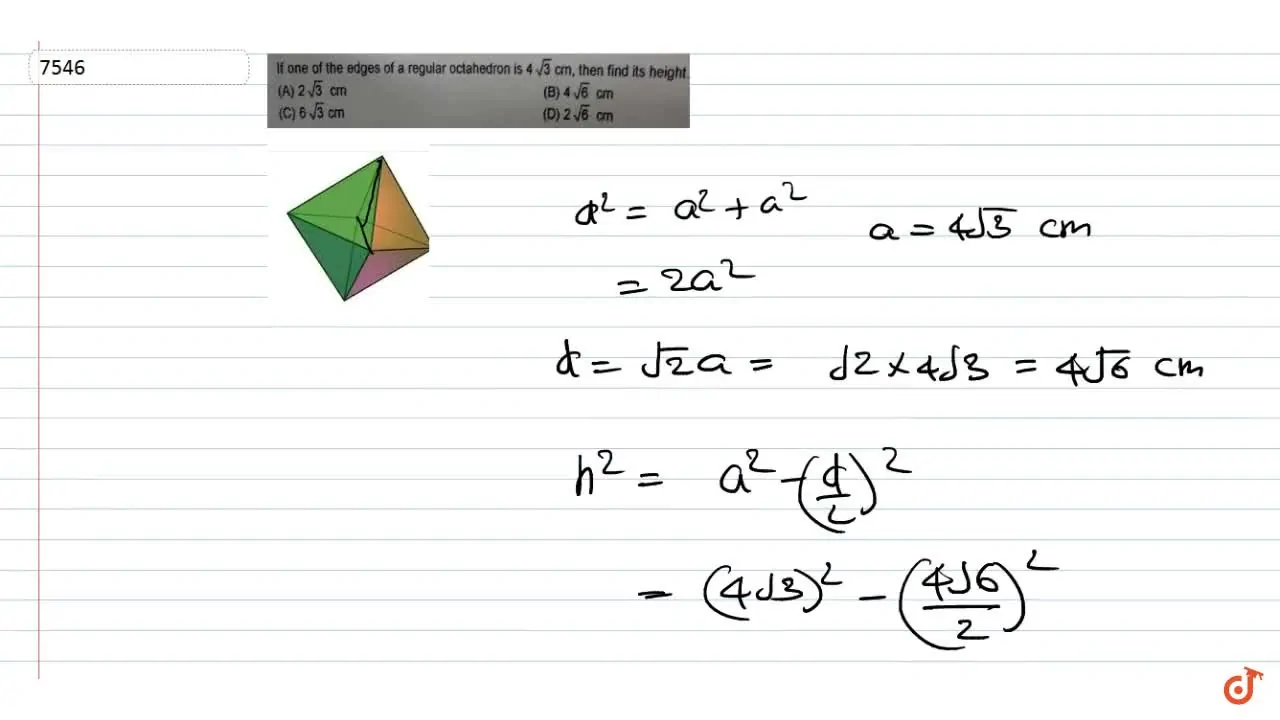 7546
If one of the edges of a regular octahedron is 4 √3 cm, then find its height.
(A) 2 √3 cm (B) 4 √6 cm
(C) 6 √3 cm (D) 2 √6 cm
d² = a² + a² a = 4√3 cm
= 2a²
d = √2a = √2 × 4√3 = 4√6 cm
h² = a² - (d/2)²
= (4√3)² - (4√6/2)²